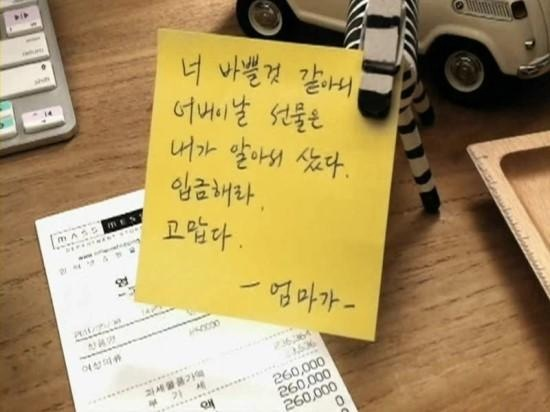 너 바쁠것 같아서
어버이날 선물은
내가 알아서 샀다.
입금해라.
고맙다.
- 엄마가 -
MASS
DEPARTMENT STORE
여성의류
과세물품가액
236,364
부 가 세
23,636
액
260,000
260,000
260,000
shift